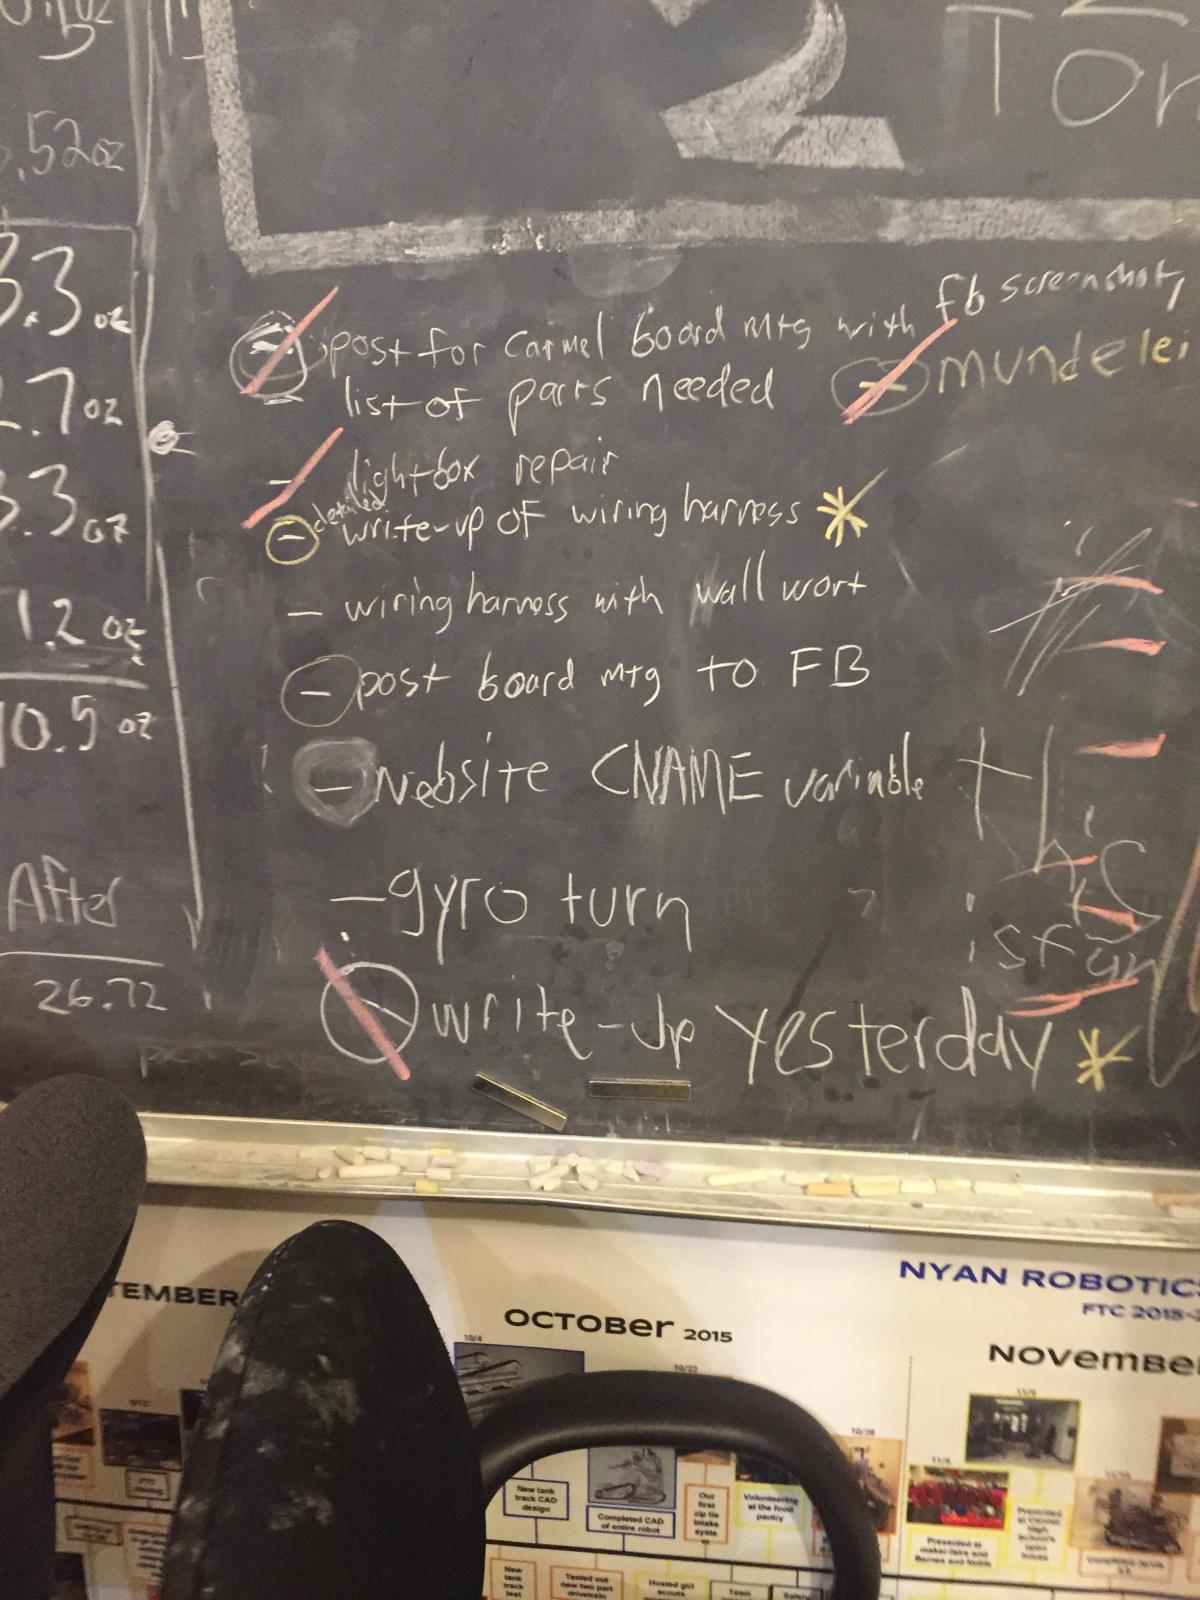 .52oz
3.3 oz
.7oz
3.3 oz
1.2 oz
10.5 oz
After
26.72
2
Tor
- post for Carmel board mtg with fb screenshot,
list of parts needed
- mundelei
- lightbox repair
- detailed write-up of wiring harness *
- wiring harness with wall wort
- post board mtg to FB
- website CNAME variable
- gyro turn
- write-up yesterday *
TEMBER
OCTOBER 2015
NYAN ROBOTICS
FTC 2015-
NOVEMBE
10/4
10/22
10/28
New tank
track CAD
design
Completed CAD
of entire robot
Our
first
zip tie
intake
syste
m
Volunteering
at the food
pantry
Presented at
maker-faire and
Barnes and Noble
New
tank
track
test
Tested out
new two part
drivetrain
Hosted girl
scouts
Team
Safety